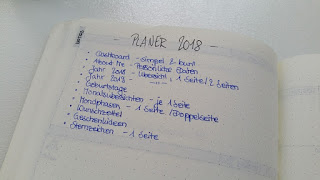 PLANER 2018
• Dashboard - simpel & bunt
• About Me - Persönliche Daten
• Jahr 2018 - Übersicht, 1 Seite / 2 Seiten
• Jahr 2019 -
• Geburtstage
• Monatsübersichten - je 1 Seite
• Mondphasen - 1 Seite / Doppelseite
• Wunschzettel
• Geschenkideen
• Sternzeichen - 1 Seite